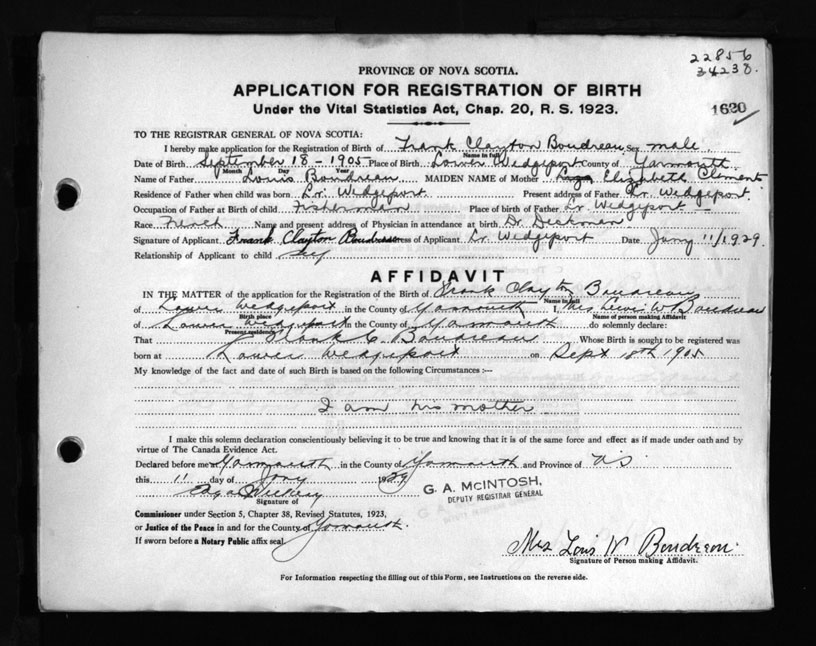 22856
34238.
PROVINCE OF NOVA SCOTIA.
APPLICATION FOR REGISTRATION OF BIRTH
1620
Under the Vital Statistics Act, Chap. 20, R. S. 1923.
TO THE REGISTRAR GENERAL OF NOVA SCOTIA:
I hereby make application for the Registration of Birth of Frank Clayton Boudreau Sex male.
Name in full
Date of Birth September 18 - 1905 Place of Birth Lower Wedgeport County of Yarmouth
Month Day Year
Name of Father Louis Boudreau MAIDEN NAME of Mother Elizabeth Clement
Residence of Father when child was born Lr. Wedgeport Present address of Father Lr Wedgeport.
Occupation of Father at Birth of child Fisherman Place of birth of Father Lr Wedgeport
Race French Name and present address of Physician in attendance at birth Dr
Signature of Applicant Frank Clayton Boudreau Address of Applicant Lr Wedgeport Date Jany 11/1929.
Relationship of Applicant to child Self
AFFIDAVIT
IN THE MATTER of the application for the Registration of the Birth of Frank Clayton Boudreau
Name in full
of Lower Wedgeport in the County of Yarmouth I, Mrs Louis W Boudreau
Birth place Name of person making Affidavit
of Lower Wedgeport in the County of Yarmouth do solemnly declare:
Present residence
That Frank C. Boudreau Whose Birth is sought to be registered was
born at Lower Wedgeport on Sept 18th 1905
My knowledge of the fact and date of such Birth is based on the following Circumstances :—
I am his mother
I make this solemn declaration conscientiously believing it to be true and knowing that it is of the same force and effect as if made under oath and by
virtue of The Canada Evidence Act.
Declared before me Yarmouth in the County of Yarmouth and Province of NS
this 11 day of Jany 1929
G. A. McINTOSH,
DEPUTY REGISTRAR GENERAL
Signature of
Commissioner under Section 5, Chapter 38, Revised Statutes, 1923,
or Justice of the Peace in and for the County of Yarmouth.
If sworn before a Notary Public affix seal
Mrs Louis W Boudreau.
Signature of Person making Affidavit.
For Information respecting the filling out of this Form, see Instructions on the reverse side.